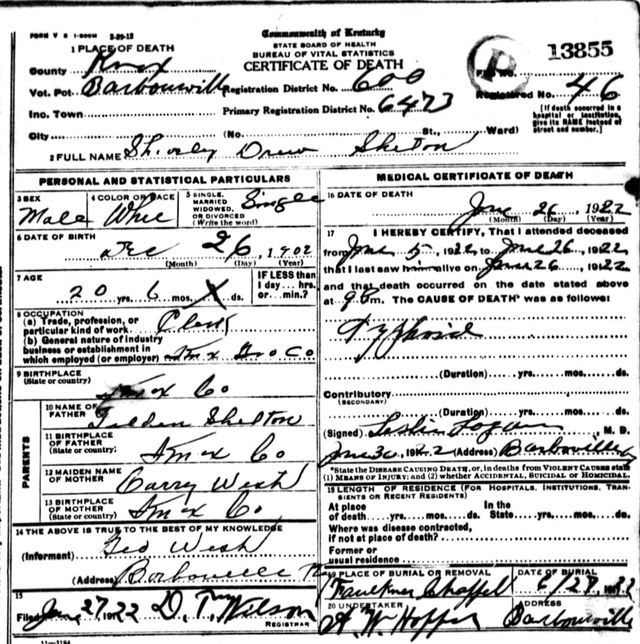 FORM V S 1-500M 2-29-12
Commonwealth of Kentucky
STATE BOARD OF HEALTH
BUREAU OF VITAL STATISTICS
CERTIFICATE OF DEATH
13855
1 PLACE OF DEATH
County Knox
Vot. Pct. Barbourville Registration District No. 600 File No.
Inc. Town Primary Registration District No. 6473 Registered No. 46
[If death occurred in a hospital or institution, give its NAME instead of street and number.]
City (No. St., Ward)
2 FULL NAME Shirley Drew Shelton
PERSONAL AND STATISTICAL PARTICULARS
3 SEX Male
4 COLOR OR RACE
5 SINGLE, MARRIED WIDOWED, OR DIVORCED (Write the word) Single
6 DATE OF BIRTH Dec 26, 1902
(Month) (Day) (Year)
7 AGE 20 yrs. 6 mos. X ds.
IF LESS than 1 day... hrs. or... min.?
8 OCCUPATION
(a) Trade, profession, or particular kind of work. Clerk
(b) General nature of industry business or establishment in which employed (or employer) Knox Gro Co
9 BIRTHPLACE (State or country) Knox Co
PARENTS
10 NAME OF FATHER Tilden Shelton
11 BIRTHPLACE OF FATHER (State or country) Knox Co
12 MAIDEN NAME OF MOTHER Carry
13 BIRTHPLACE OF MOTHER (State or country) Knox Co
14 THE ABOVE IS TRUE TO THE BEST OF MY KNOWLEDGE
(Informant) Geo
(Address) Barbourville
15 Filed June 27, 1922 D. T. Wilson
REGISTRAR
11-3184
MEDICAL CERTIFICATE OF DEATH
16 DATE OF DEATH June 26 1922
(Month) (Day) (Year)
17 I HEREBY CERTIFY, That I attended deceased
from June 5, 1922, to June 26, 1922
that I last saw him alive on June 26, 1922
and that death occurred on the date stated above
at 9 m. The CAUSE OF DEATH* was as follows:
Typhoid
(Duration) yrs. mos. ds.
Contributory (SECONDARY)
(Duration) yrs. mos. ds.
(Signed) Leslie Logan, M. D.
1922 (Address) Barbourville
*State the DISEASE CAUSING DEATH, or, in deaths from VIOLENT CAUSES state (1) MEANS OF INJURY; and (2) whether ACCIDENTAL, SUICIDAL or HOMICIDAL.
18 LENGTH OF RESIDENCE (FOR HOSPITALS, INSTITUTIONS, TRANSIENTS OR RECENT RESIDENTS)
At place of death yrs. mos. ds. In the State yrs. mos. ds.
Where was disease contracted, if not at place of death?
Former or usual residence
19 PLACE OF BURIAL OR REMOVAL Faulkner Chappell
DATE OF BURIAL 6/27, 1922
20 UNDERTAKER A. W. Hopper
ADDRESS Barbourville